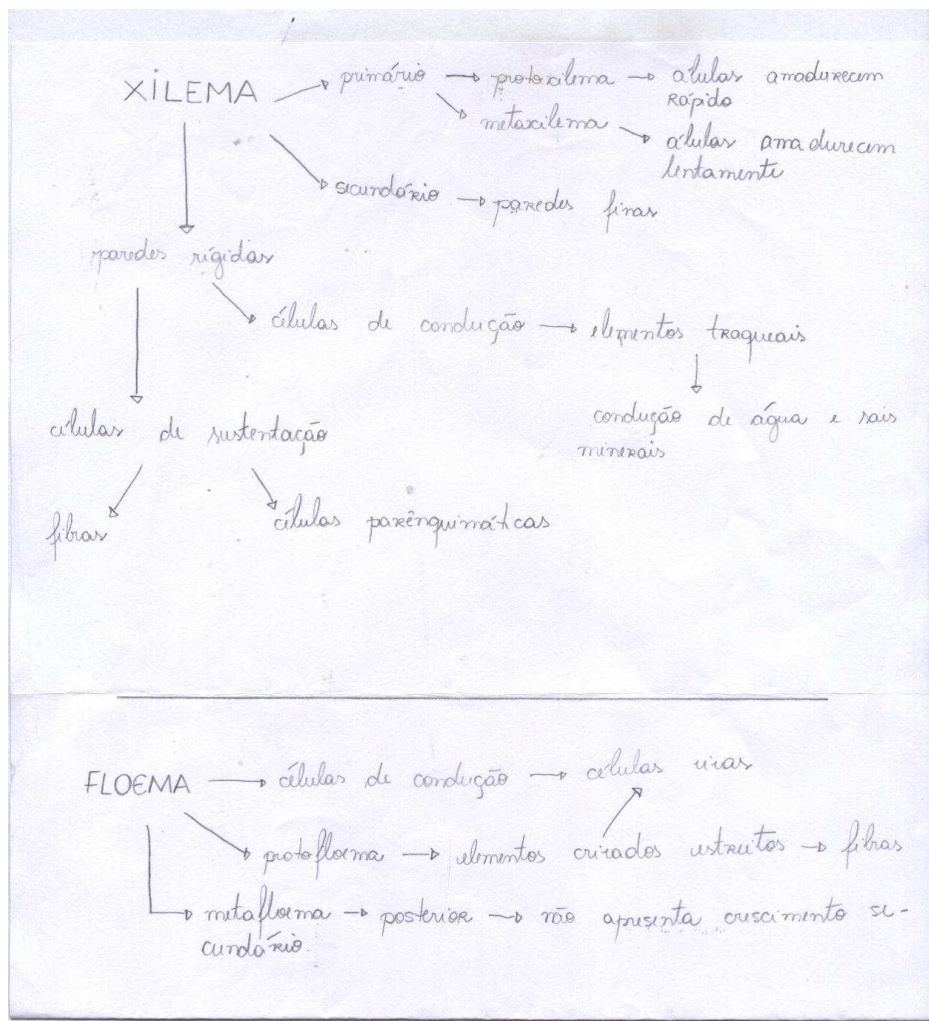 XILEMA → primário → protoxilema → células amadurecem
rápido
→ metaxilema → células amadurecem
lentamente
→ secundário → paredes finas
paredes rígidas
→ células de condução → elementos traqueais
células de sustentação
condução de água e sais
minerais
fibras
células parênquimáticas
FLOEMA → células de condução → células vivas
→ protofloema → elementos crivados estreitos → fibras
→ metafloema → posterior → não apresenta crescimento se-
cundário